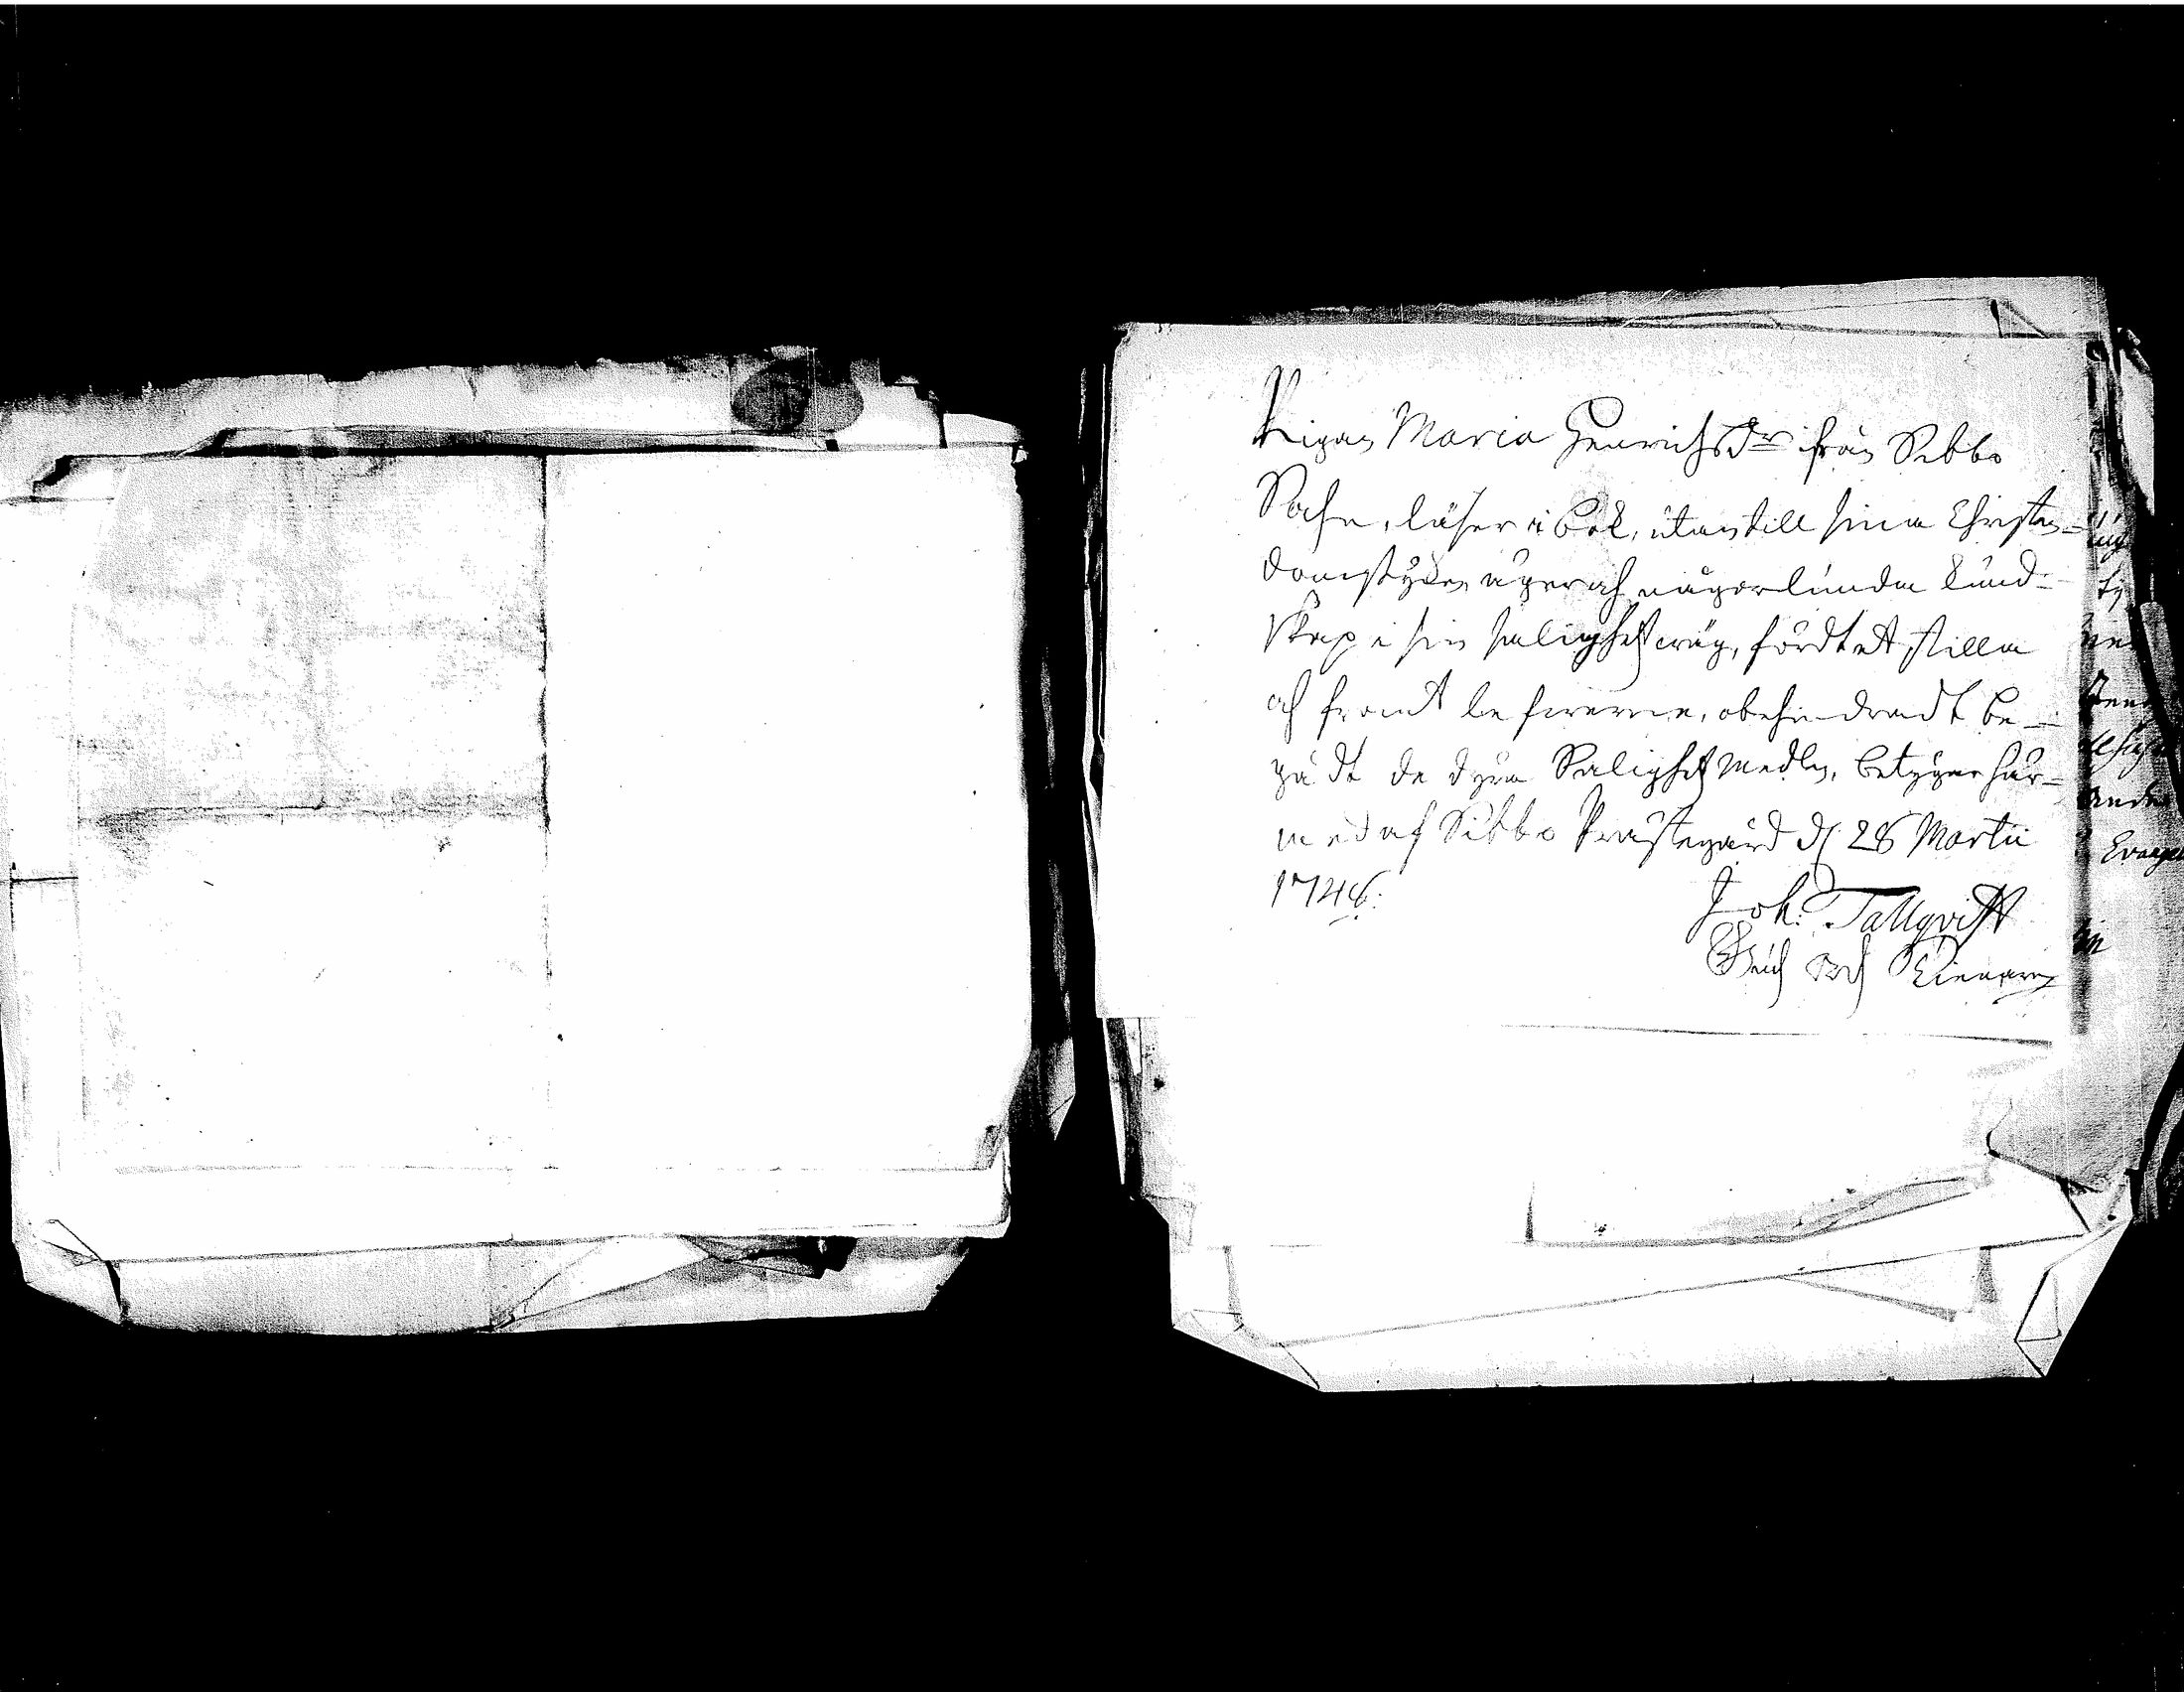 Pigan Maria Henrichsdr från Sibbo
Sochn, läser i Bok, utantill sina Christen-
domstyken, äger och någorlunda kund-
skap i sin salighets wäg, fördt ett stilla
och fromt lefwerne, obehindradt be-
gådt de dyra Salighets medlen, betygar här-
med af Sibbo Prästegård d. 28 Martii
1746.
Joh: Tallqvist